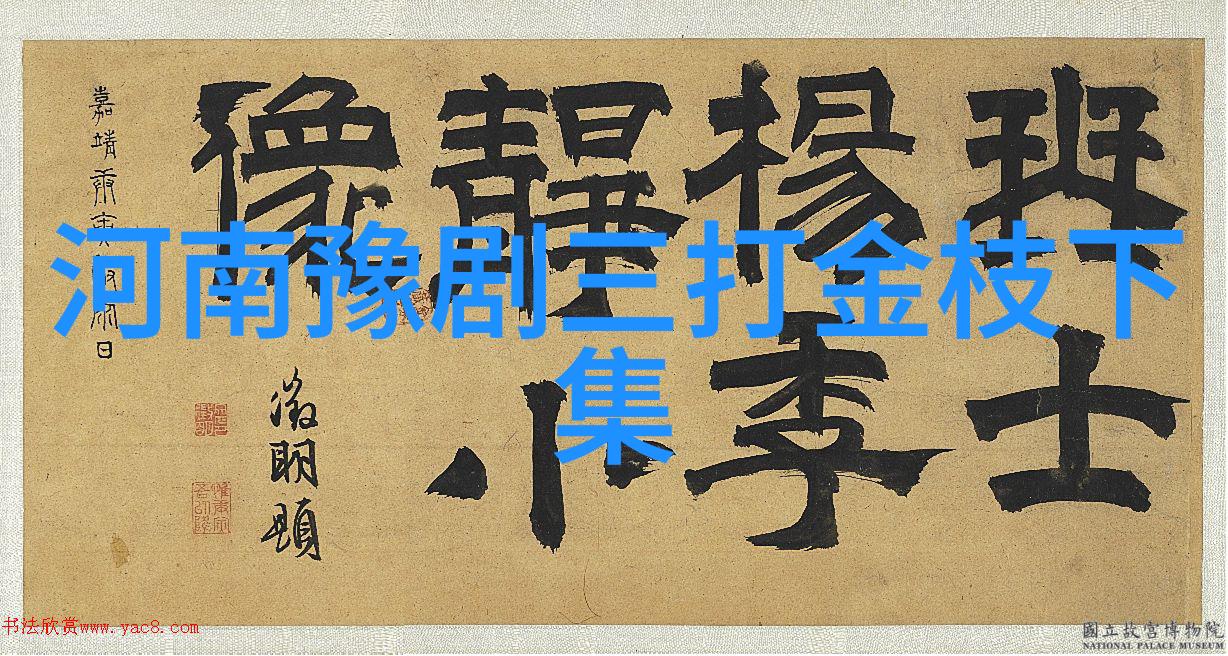 河南豫剧三打金枝下
集
士
楊季
靜小
像
嘉靖庚寅
日
徵明題
书法欣赏www.yac8.com
國立故宮博物院
NATIONAL PALACE MUSEUM